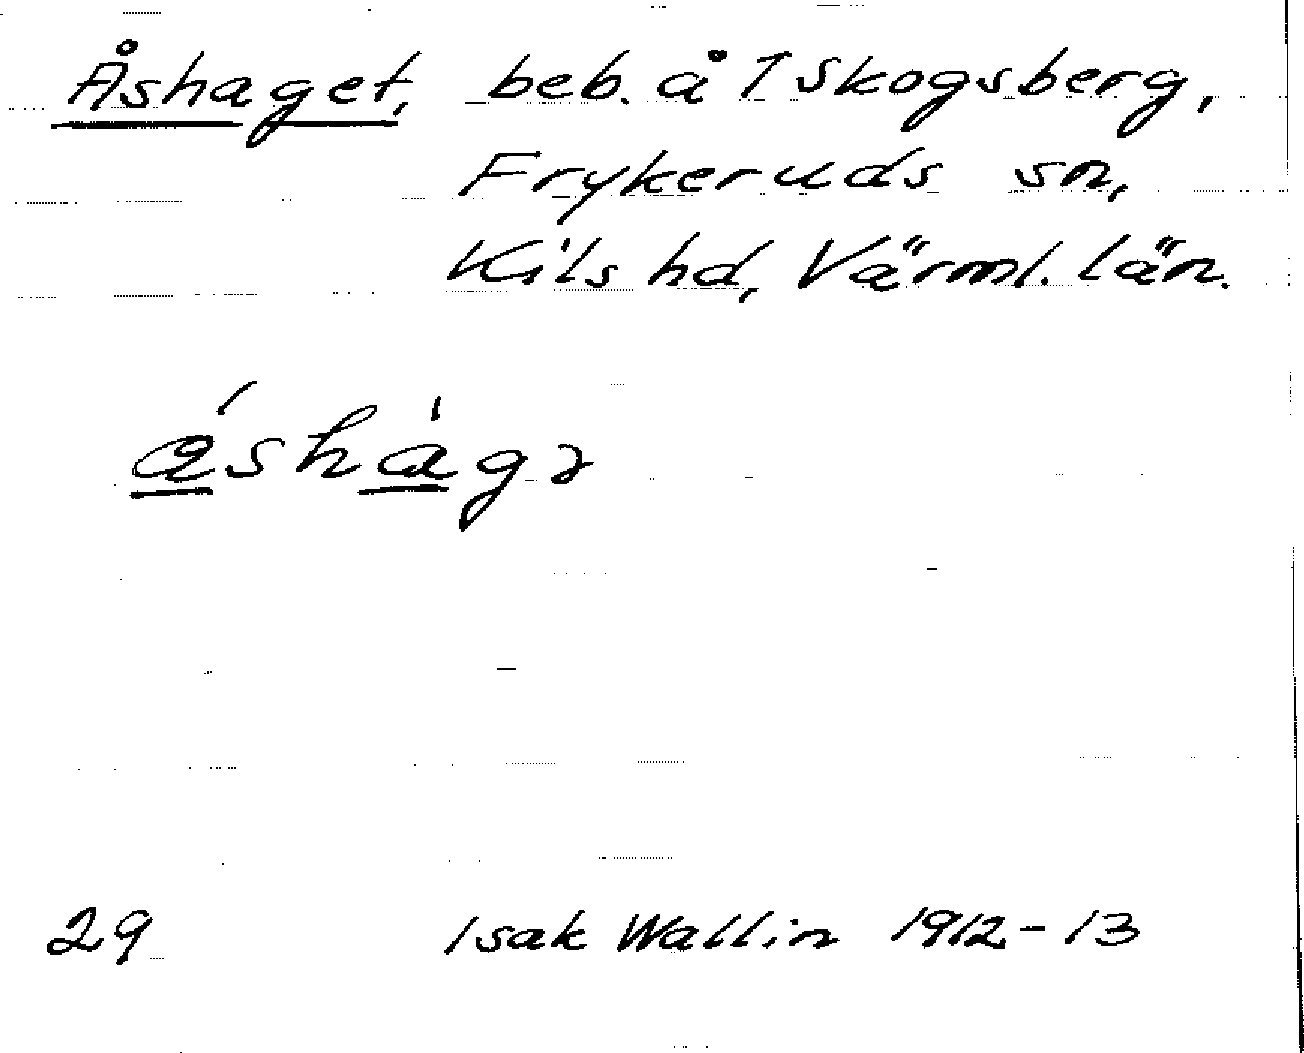 Åshaget, beb. å 1 Skogsberg,
Frykeruds sn,
Kils hd, Värml. län.
áshàgə
29 Isak Wallin 1912-13